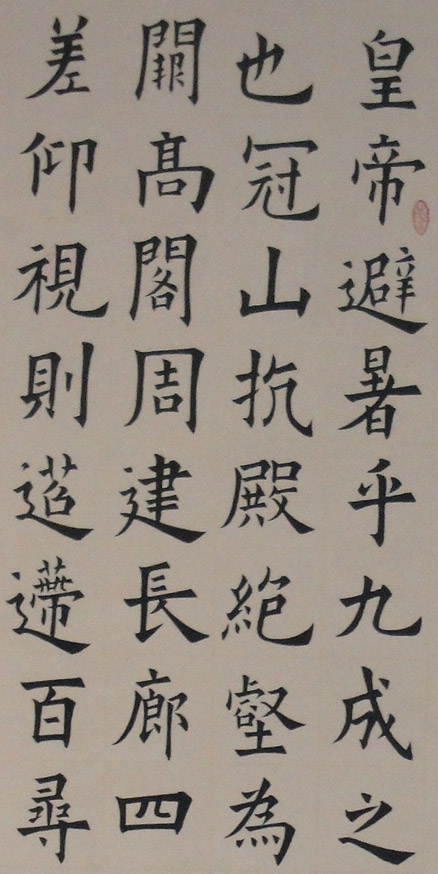 皇帝避暑乎九成之
也冠山抗殿絶壑為
闕髙閣周建長廊四
差仰視則迢遰百尋